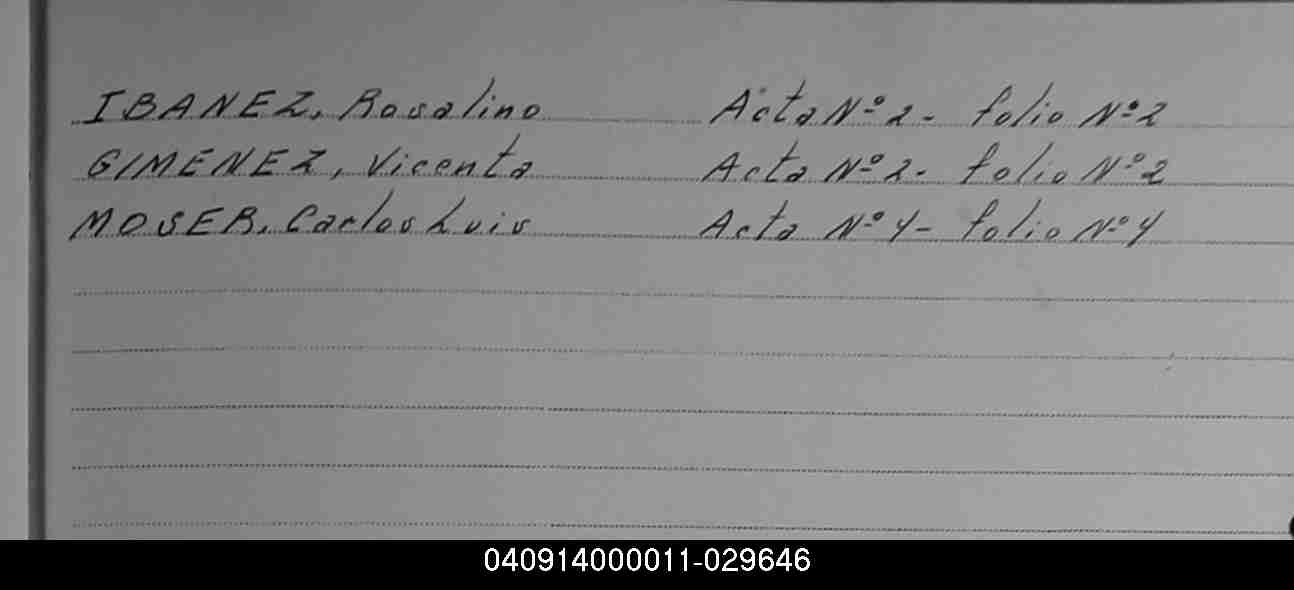 IBANEZ, Rosalino Acta Nº 2 - folio Nº 2
GIMENEZ, Vicenta Acta Nº 2 - folio Nº 2
MOSER, Carlos Luis Acta Nº 4 - folio Nº 4
040914000011-029646